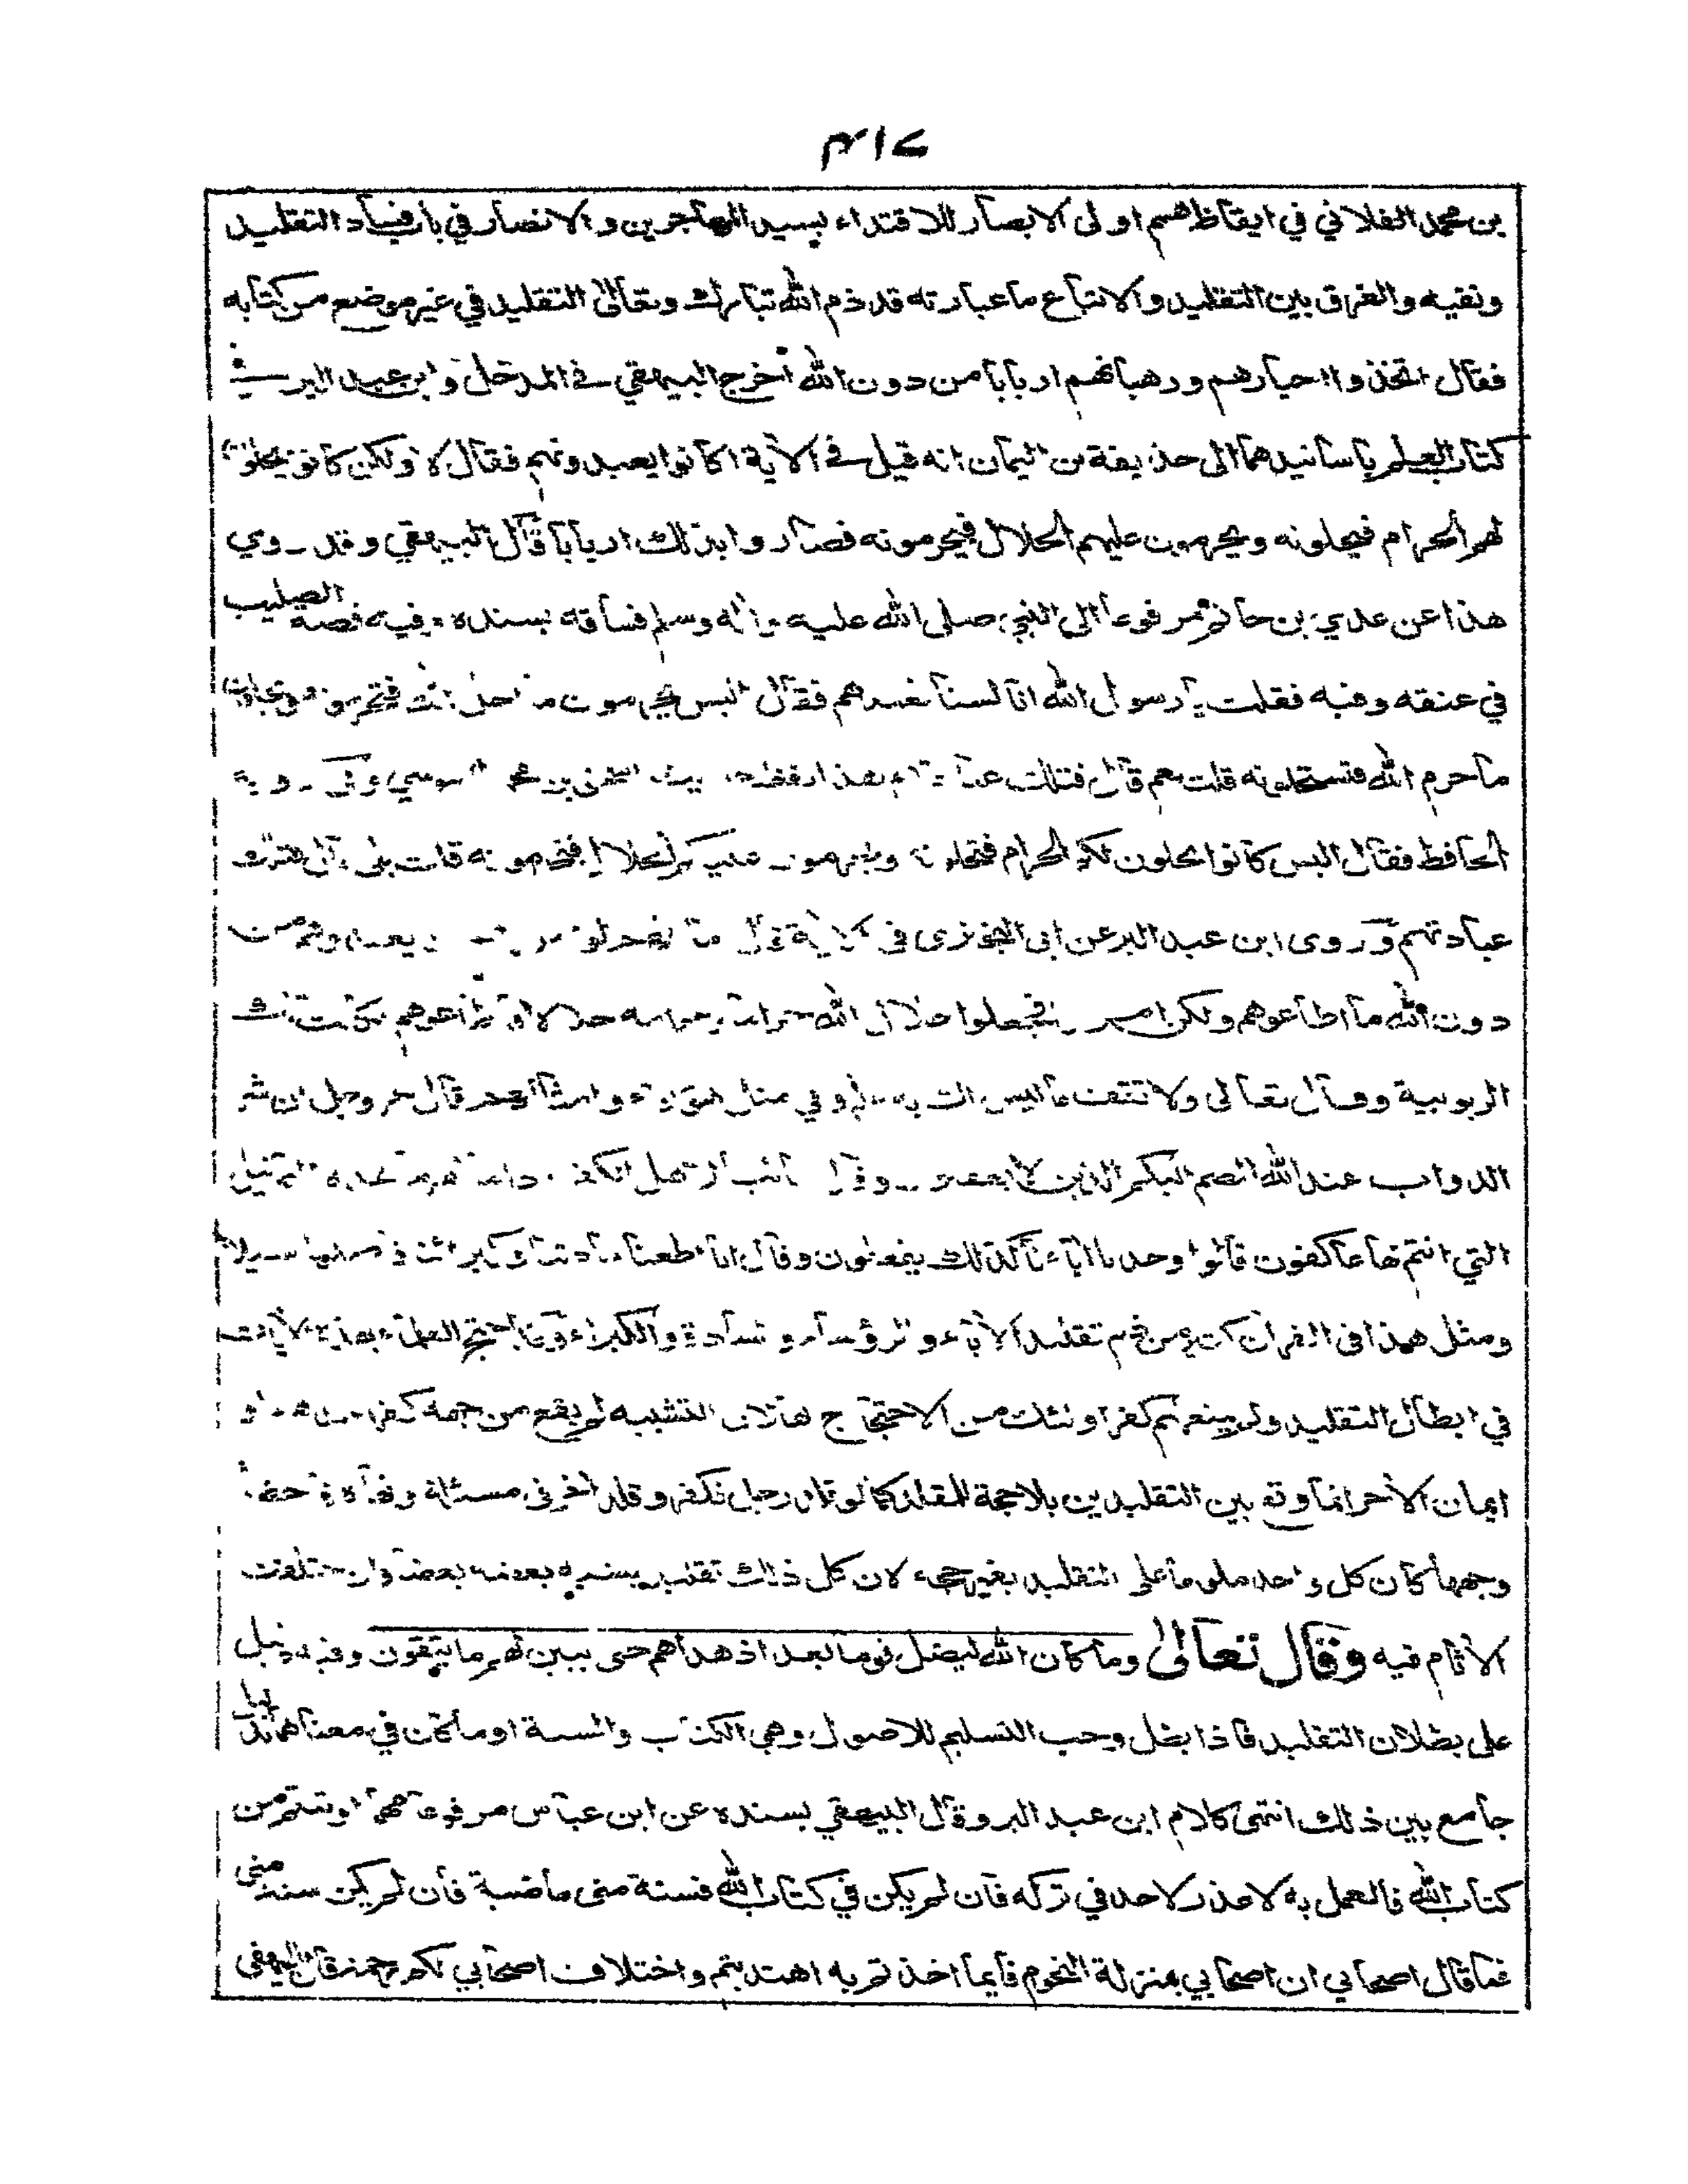 ٣١٧
بن محمد الفلاني في ايقاظ همم اولى الابصار للاقتداء بسيد المهاجرين والانصار في باب فساد التقليد
ونفيه والفرق بين التقليد والاتباع ما عبارته قد ذم الله تبارك وتعالى التقليد في غير موضع من كتابه
فقال اتخذوا احبارهم ورهبانهم اربابا من دون الله أخرج البيهقي في المدخل وابن عبد البر في
كتاب العلم باسانيدهما الى حذيفة بن اليمان انه قيل في الآية اكانوا يعبدونهم فقال لا ولكن كانوا يحلون
لهم الحرام فيحلونه ويحرمون عليهم الحلال فيحرمونه فصاروا بذلك اربابا قال البيهقي وقد روي
هذا عن عدي بن حاتم مرفوعا الى النبي صلى الله عليه وآله وسلم فساقه بسنده وفيه قصة الصليب
في عنقه وفيه فقلت يا رسول الله انا لسنا نعبدهم فقال اليس يحرمون ما احل الله فتحرمونه ويحلون
ما حرم الله فتستحلونه قلت نعم قال فتلك عبادتهم بهذا اللفظ
الحافظ فقال اليس كانوا يحلون لكم الحرام فتحلونه ويحرمون عليكم الحلال فتحرمونه قلت بلى قال فتلك
عبادتهم وروى ابن عبد البر عن ابى البختري فى الآية قال ما يعبدونهم من
دون الله ما اطاعوهم ولكن امروهم فجعلوا حلال الله حرامه وحرامه حلالا فاطاعوهم فكانت تلك
الربوبية وقال تعالى ولا تقف ما ليس لك به علم وفي قال عز وجل ان شر
الدواب عند الله الصم البكم الذين لا يعقلون وقال ما هذه التماثيل
التي انتم لها عاكفون قالوا وجدنا آباءنا كذلك يفعلون وقال انا اطعنا سادتنا وكبراءنا فاضلونا السبيلا
ومثل هذا فى القرآن كثير من ذم تقليد الآباء والرؤساء والسادة والكبراء وقد احتج العلماء بهذه الآيات
في ابطال التقليد ولم يمنعهم كفر اولئك من الاحتجاج بها لان التشبيه لم يقع من جهة كفر
ايمان الآخر انما وقع بين التقليدين بلا حجة للمقلد كما لو قلد رجل فكفر وقلد آخر فى مسئلة دنياه فاخطأ
وجهها كان كل واحد ملوما على التقليد بغير حجة لان كل ذلك تقليد يشبه بعضه بعضا وان اختلفت
الآثام فيه وقال تعالى وما كان الله ليضل قوما بعد اذ هداهم حتى يبين لهم ما يتقون وفيه دليل
على بطلان التقليد فاذا بطل وجب التسليم للاصول وهي الكتاب والسنة او ما كان في معناهما بدليل
جامع بين ذلك انتهى كلام ابن عبد البر وقال البيهقي بسنده عن ابن عباس مرفوعا مهما اوتيتم من
كتاب الله فالعمل به لا عذر لاحد في تركه فان لم يكن في كتاب الله فسنة مني ماضية فان لم يكن سنة مني
فما قال اصحابي ان اصحابي بمنزلة النجوم فايما اخذتم به اهتديتم واختلاف اصحابي لكم رحمة قال البيهقى